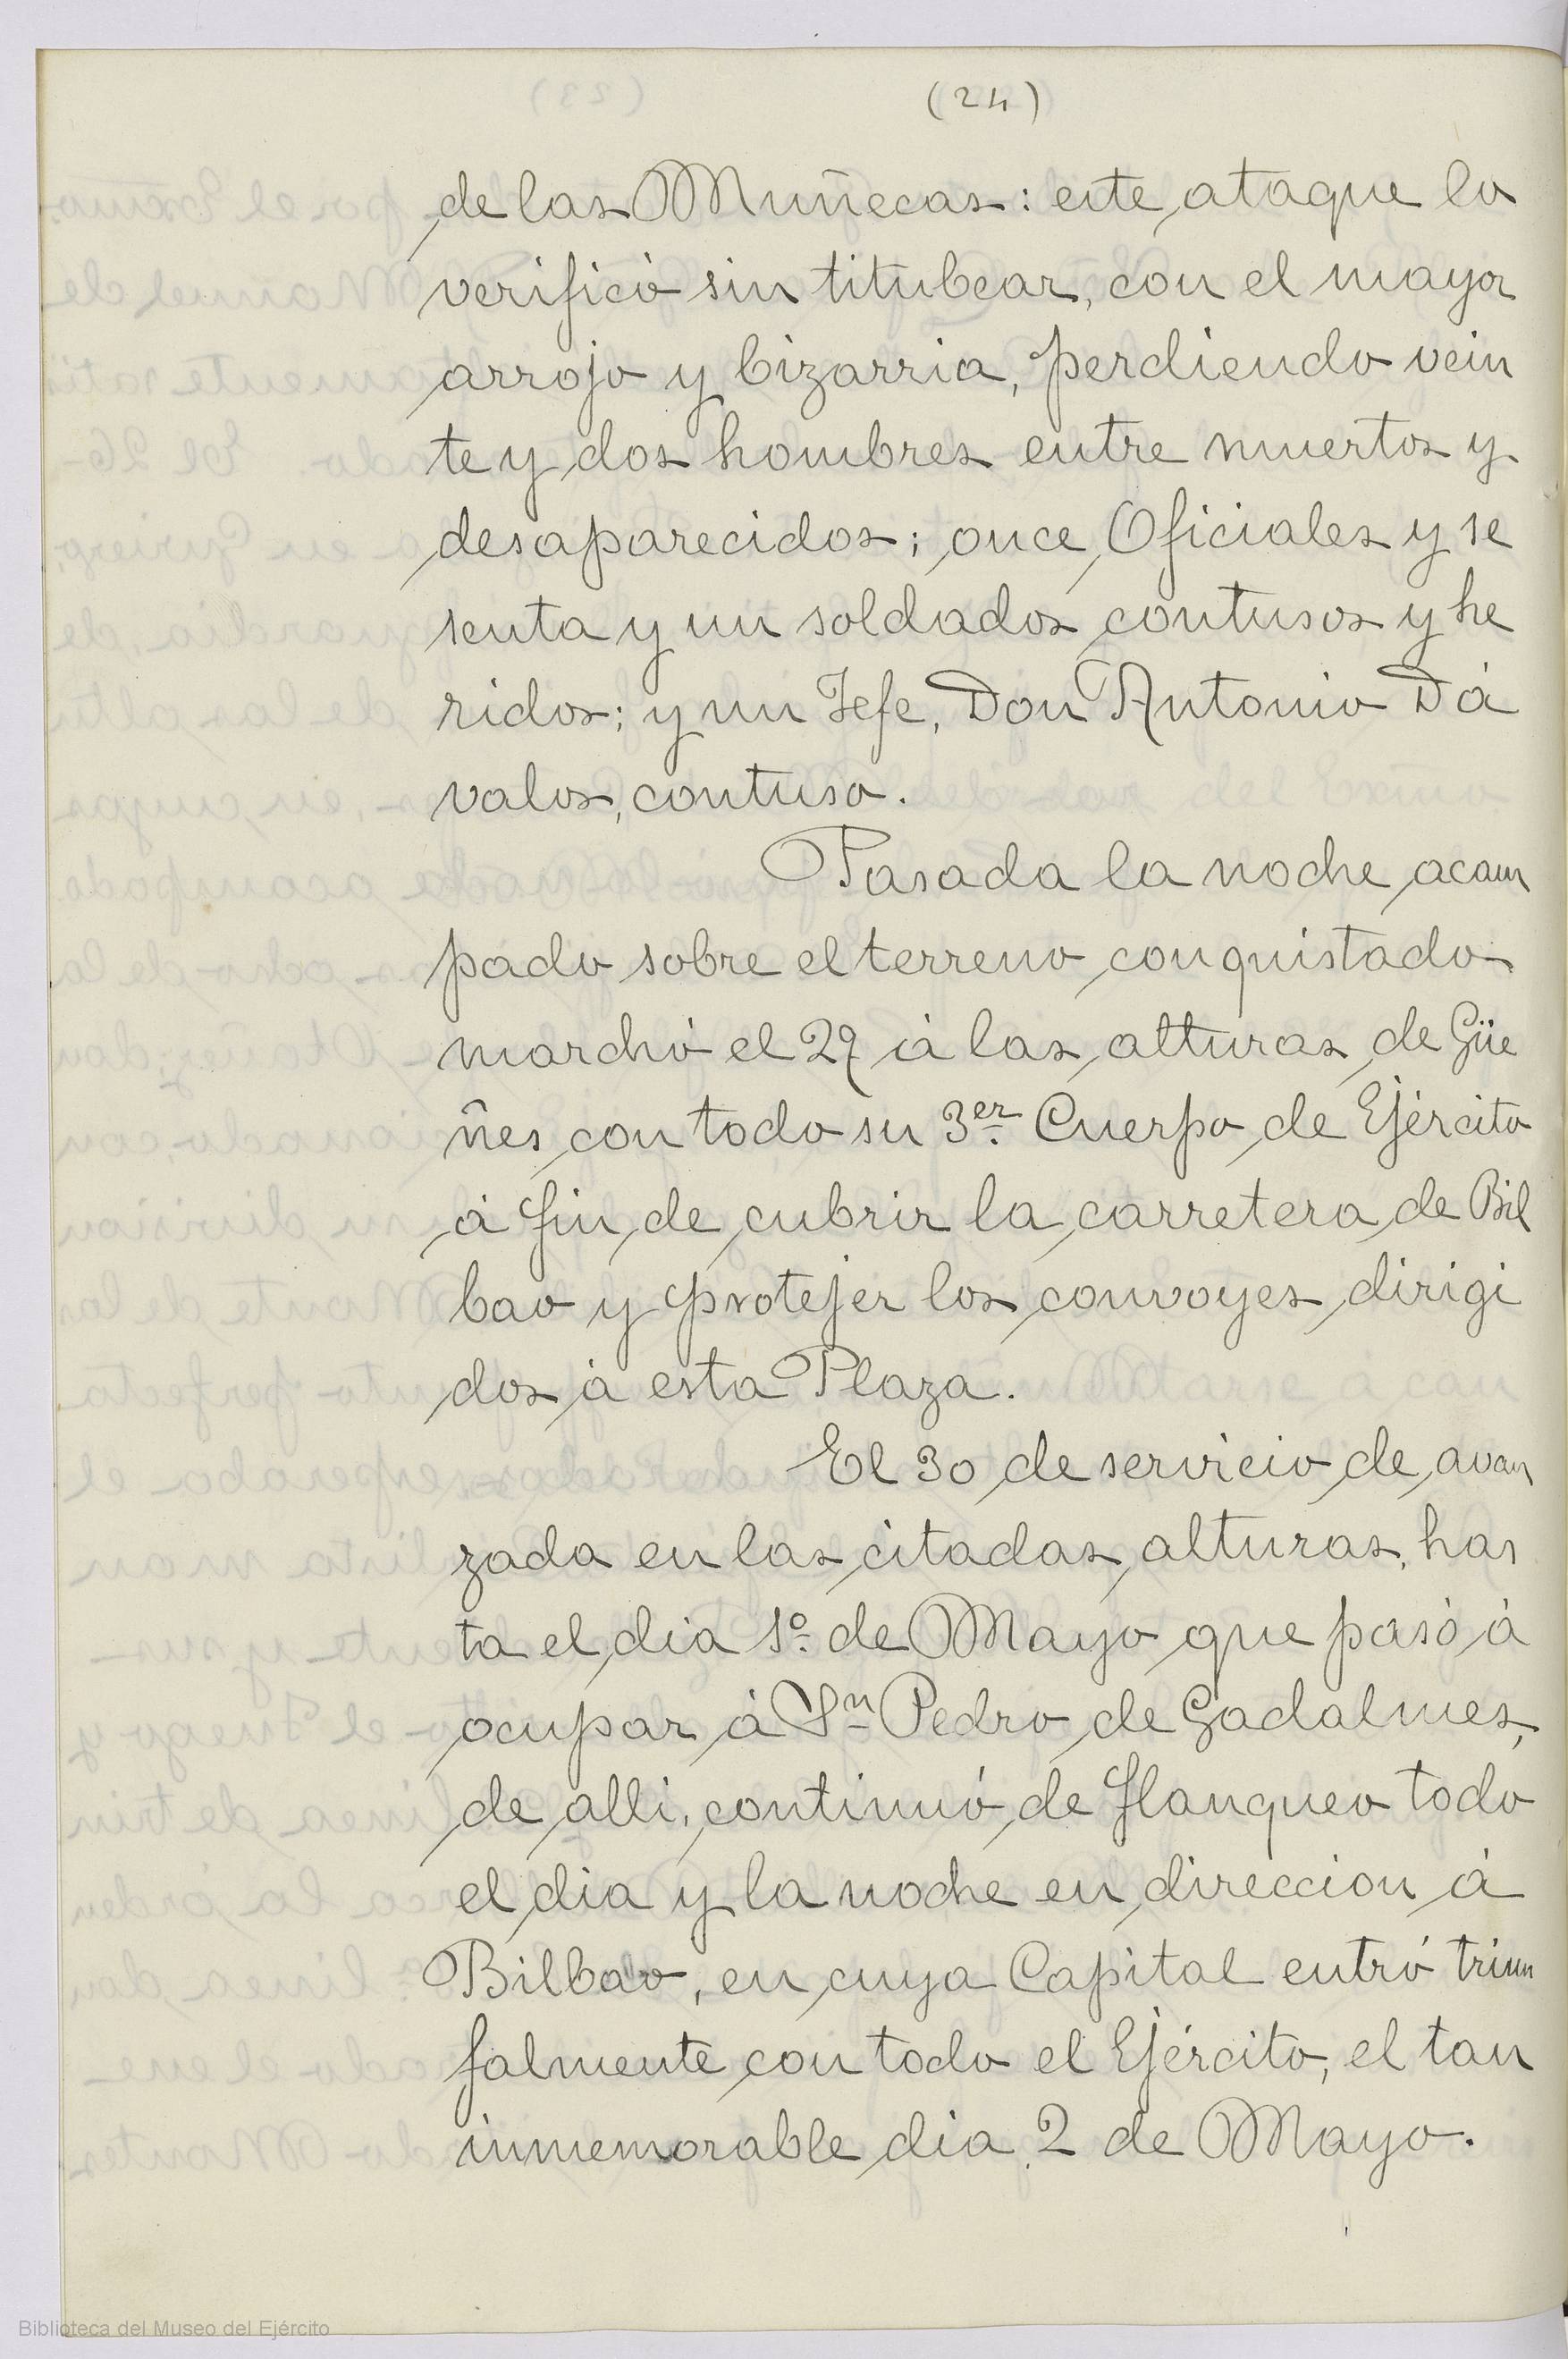 (24)
de las Muñecas: este ataque lo
verificó sin titubear, con el mayor
arrojo y bizarria, perdiendo vein
te y dos hombres entre muertos y
desaparecidos; once Oficiales y se
senta y un soldados contusos y he
ridos; y un Jefe, Don Antonio Dá
valos, contuso.
Pasada la noche acam
pado sobre el terreno conquistado
marchó el 29 á las alturas de Güe
ñes con todo su 3er. Cuerpo de Ejército
á fin de cubrir la carretera de Bil
bao y protejer los convoyes dirigi
dos á esta Plaza.
El 30 de servicio de avan
zada en las citadas alturas, has
ta el dia 1º de Mayo que pasó á
ocupar á Sn Pedro de Gadalmes,
de alli, continuó de flanqueo todo
el dia y la noche en direccion á
Bilbao, en cuya Capital entró triun
falmente con todo el Ejército, el tan
inmemorable dia 2 de Mayo.
Biblioteca del Museo del Ejército